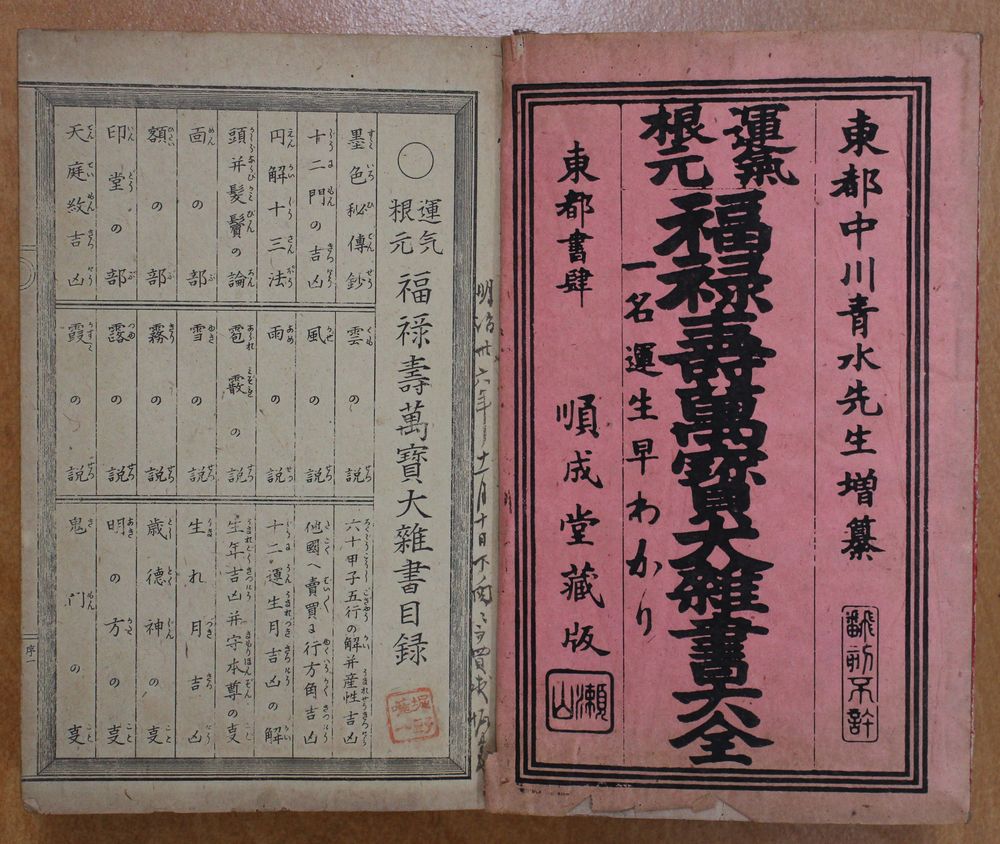 東都中川青水先生増纂
飜刻不許
運氣根元
福禄壽萬寳大雜書大全
一名運生早わかり
東都書肆
順成堂藏版
瀬山
明治卅六年十一月十日
〇運气根元 福禄壽萬寶大雜書目録
墨色秘傳鈔
十二門の吉凶
円解十三法
頭并髪鬢の論
面の部
額の部
印堂の部
天庭紋吉凶
雲の説
風の説
雨の説
雹霰の説
雪の説
霧の説
露の説
霞の説
六十甲子五行の解并産性吉凶
他國へ賣買に行方角吉凶
十二運生月吉凶の解
生年吉凶并守本尊の㕝
生れ月吉凶
歳德神の㕝
明の方の㕝
鬼門の㕝
序一